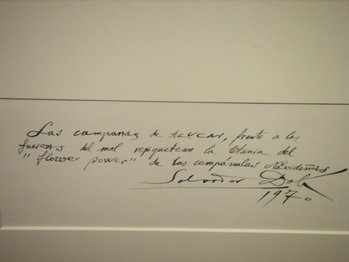 Las campanas de AZUCAR, frente a las
fuerzas del mal repiquetean la letania del
"flower power" de las campánulas Navideñas
Salvador Dalí
1970